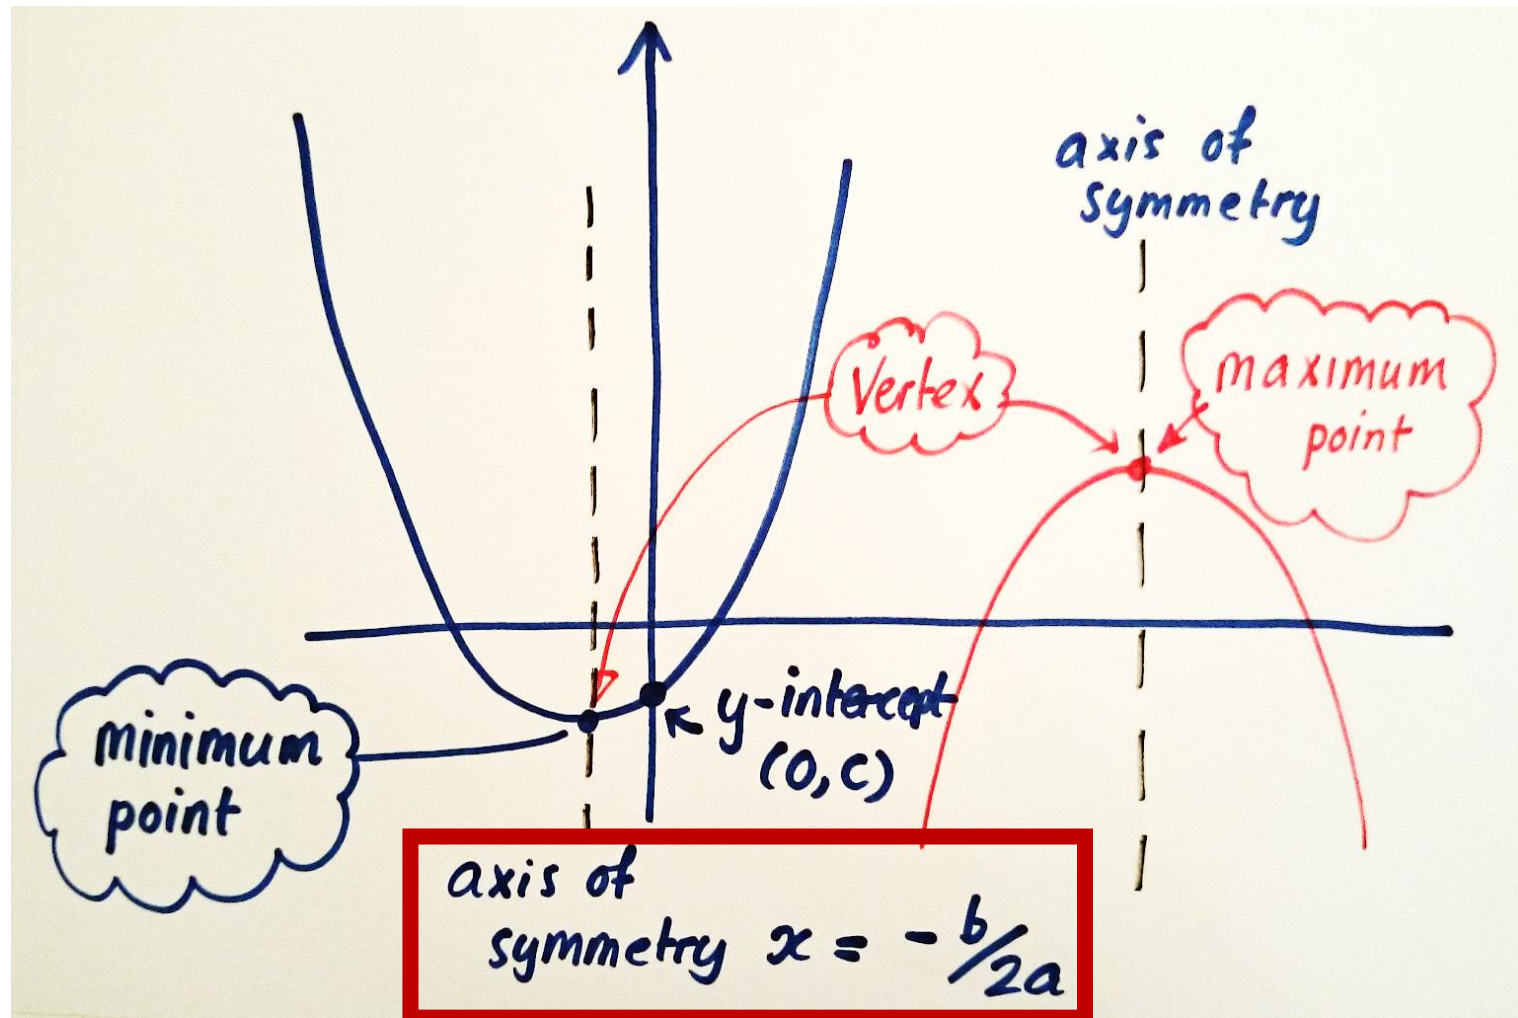 axis of
symmetry
Vertex
maximum
point
minimum
point
y-intercept
(0, C)
axis of
symmetry x = - b/2a